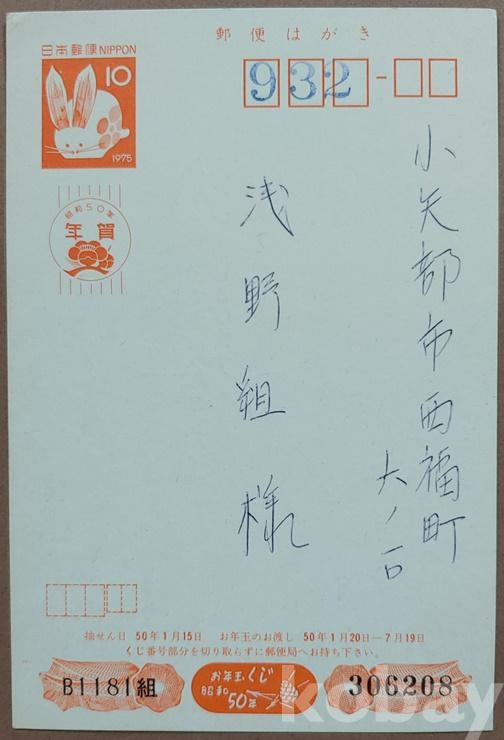 郵便はがき
日本郵便 NIPPON
10
1975
932
昭和50年
年賀
小矢部市西福町
六ノ一〇
浅野組様
抽せん日 50年1月15日 お年玉のお渡し 50年1月20日―7月19日
くじ番号部分を切り取らずに郵便局へお持ち下さい。
B1181組
お年玉くじ
昭和
50年
306208
kobay